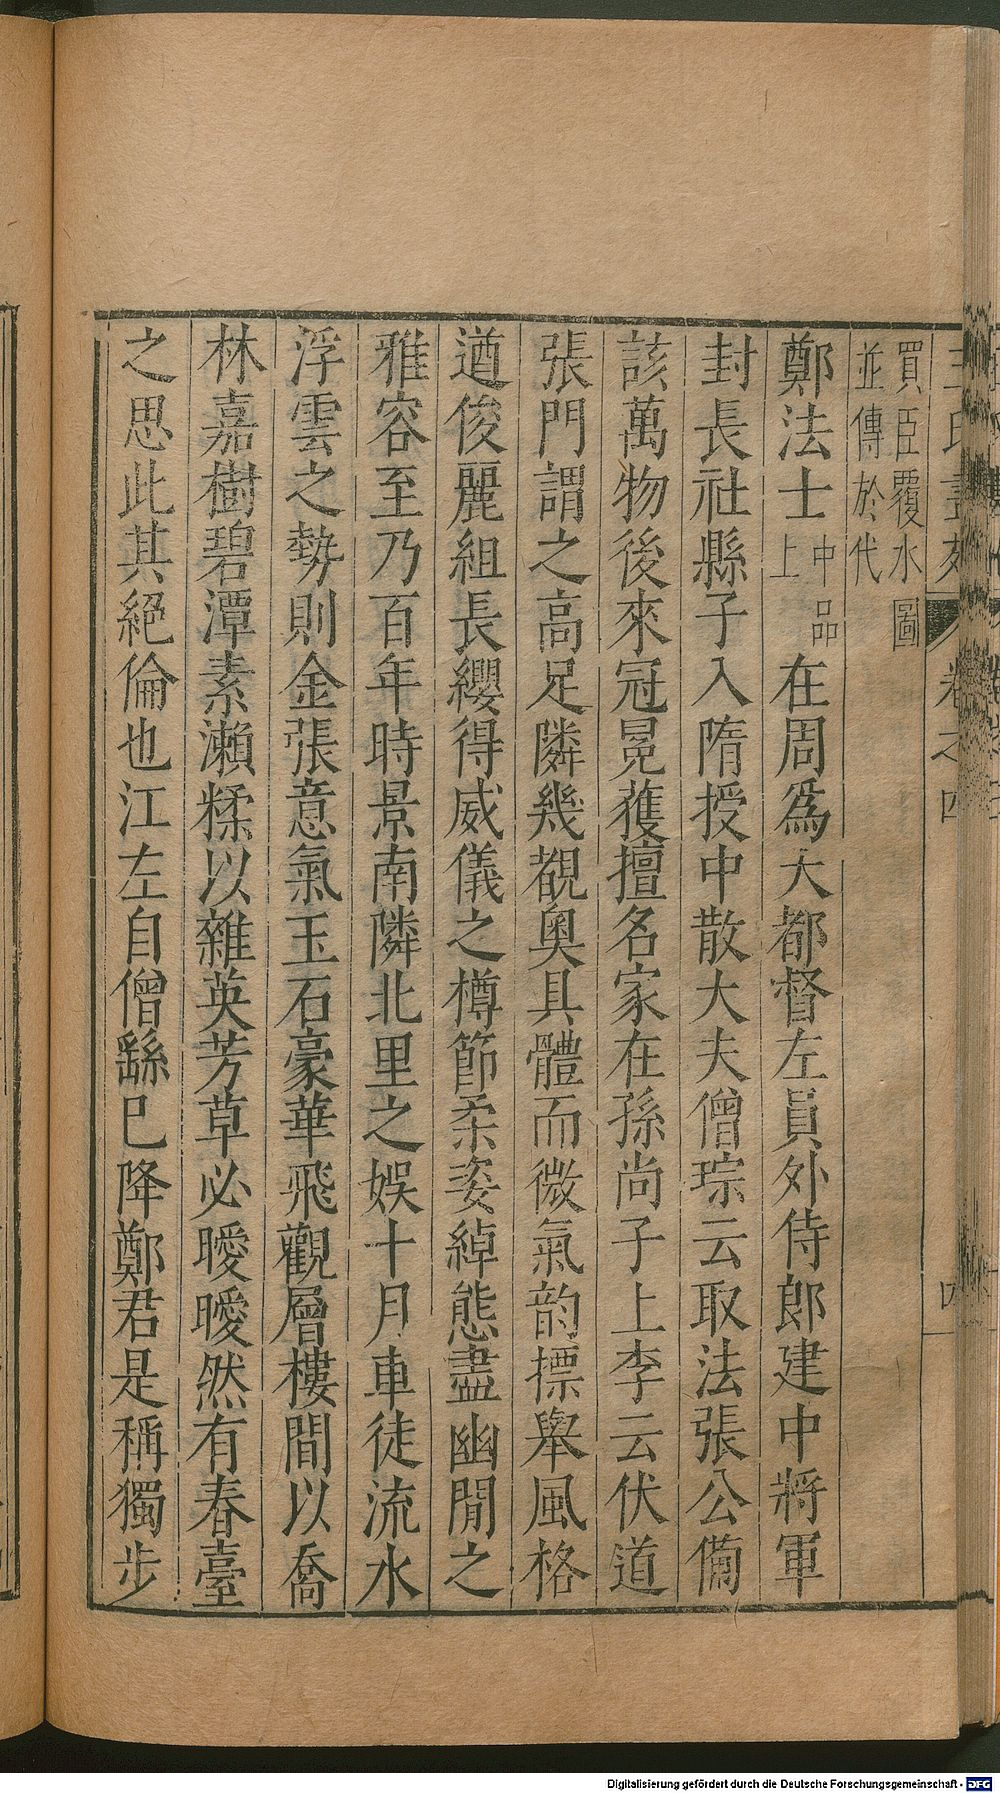 王氏畫苑 卷之四 四
買臣覆水圖
並傳於代
鄭法士中品上在周爲大都督左員外侍郎建中將軍
封長社縣子入隋授中散大夫僧琮云取法張公備
該萬物後來冠冕獲擅名家在孫尚子上李云伏道
張門謂之高足隣幾覩奧具體而微氣韵摽舉風格
遒俊麗組長纓得威儀之樽節柔姿綽態盡幽閒之
雅容至乃百年時景南隣北里之娛十月車徒流水
浮雲之勢則金張意氣玉石豪華飛觀層樓間以喬
林嘉樹碧潭素瀨糅以雜英芳草必曖曖然有春臺
之思此其絕倫也江左自僧繇已降鄭君是稱獨步
Digitalisierung gefördert durch die Deutsche Forschungsgemeinschaft - DFG